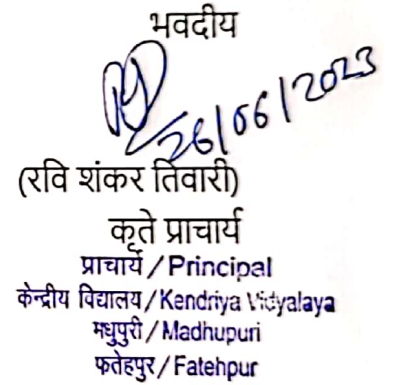 भवदीय
26/06/2023
(रवि शंकर तिवारी)
कृते प्राचार्य
प्राचार्य / Principal
केन्द्रीय विद्यालय / Kendriya Vidyalaya
मधुपुरी / Madhupuri
फतेहपुर / Fatehpur